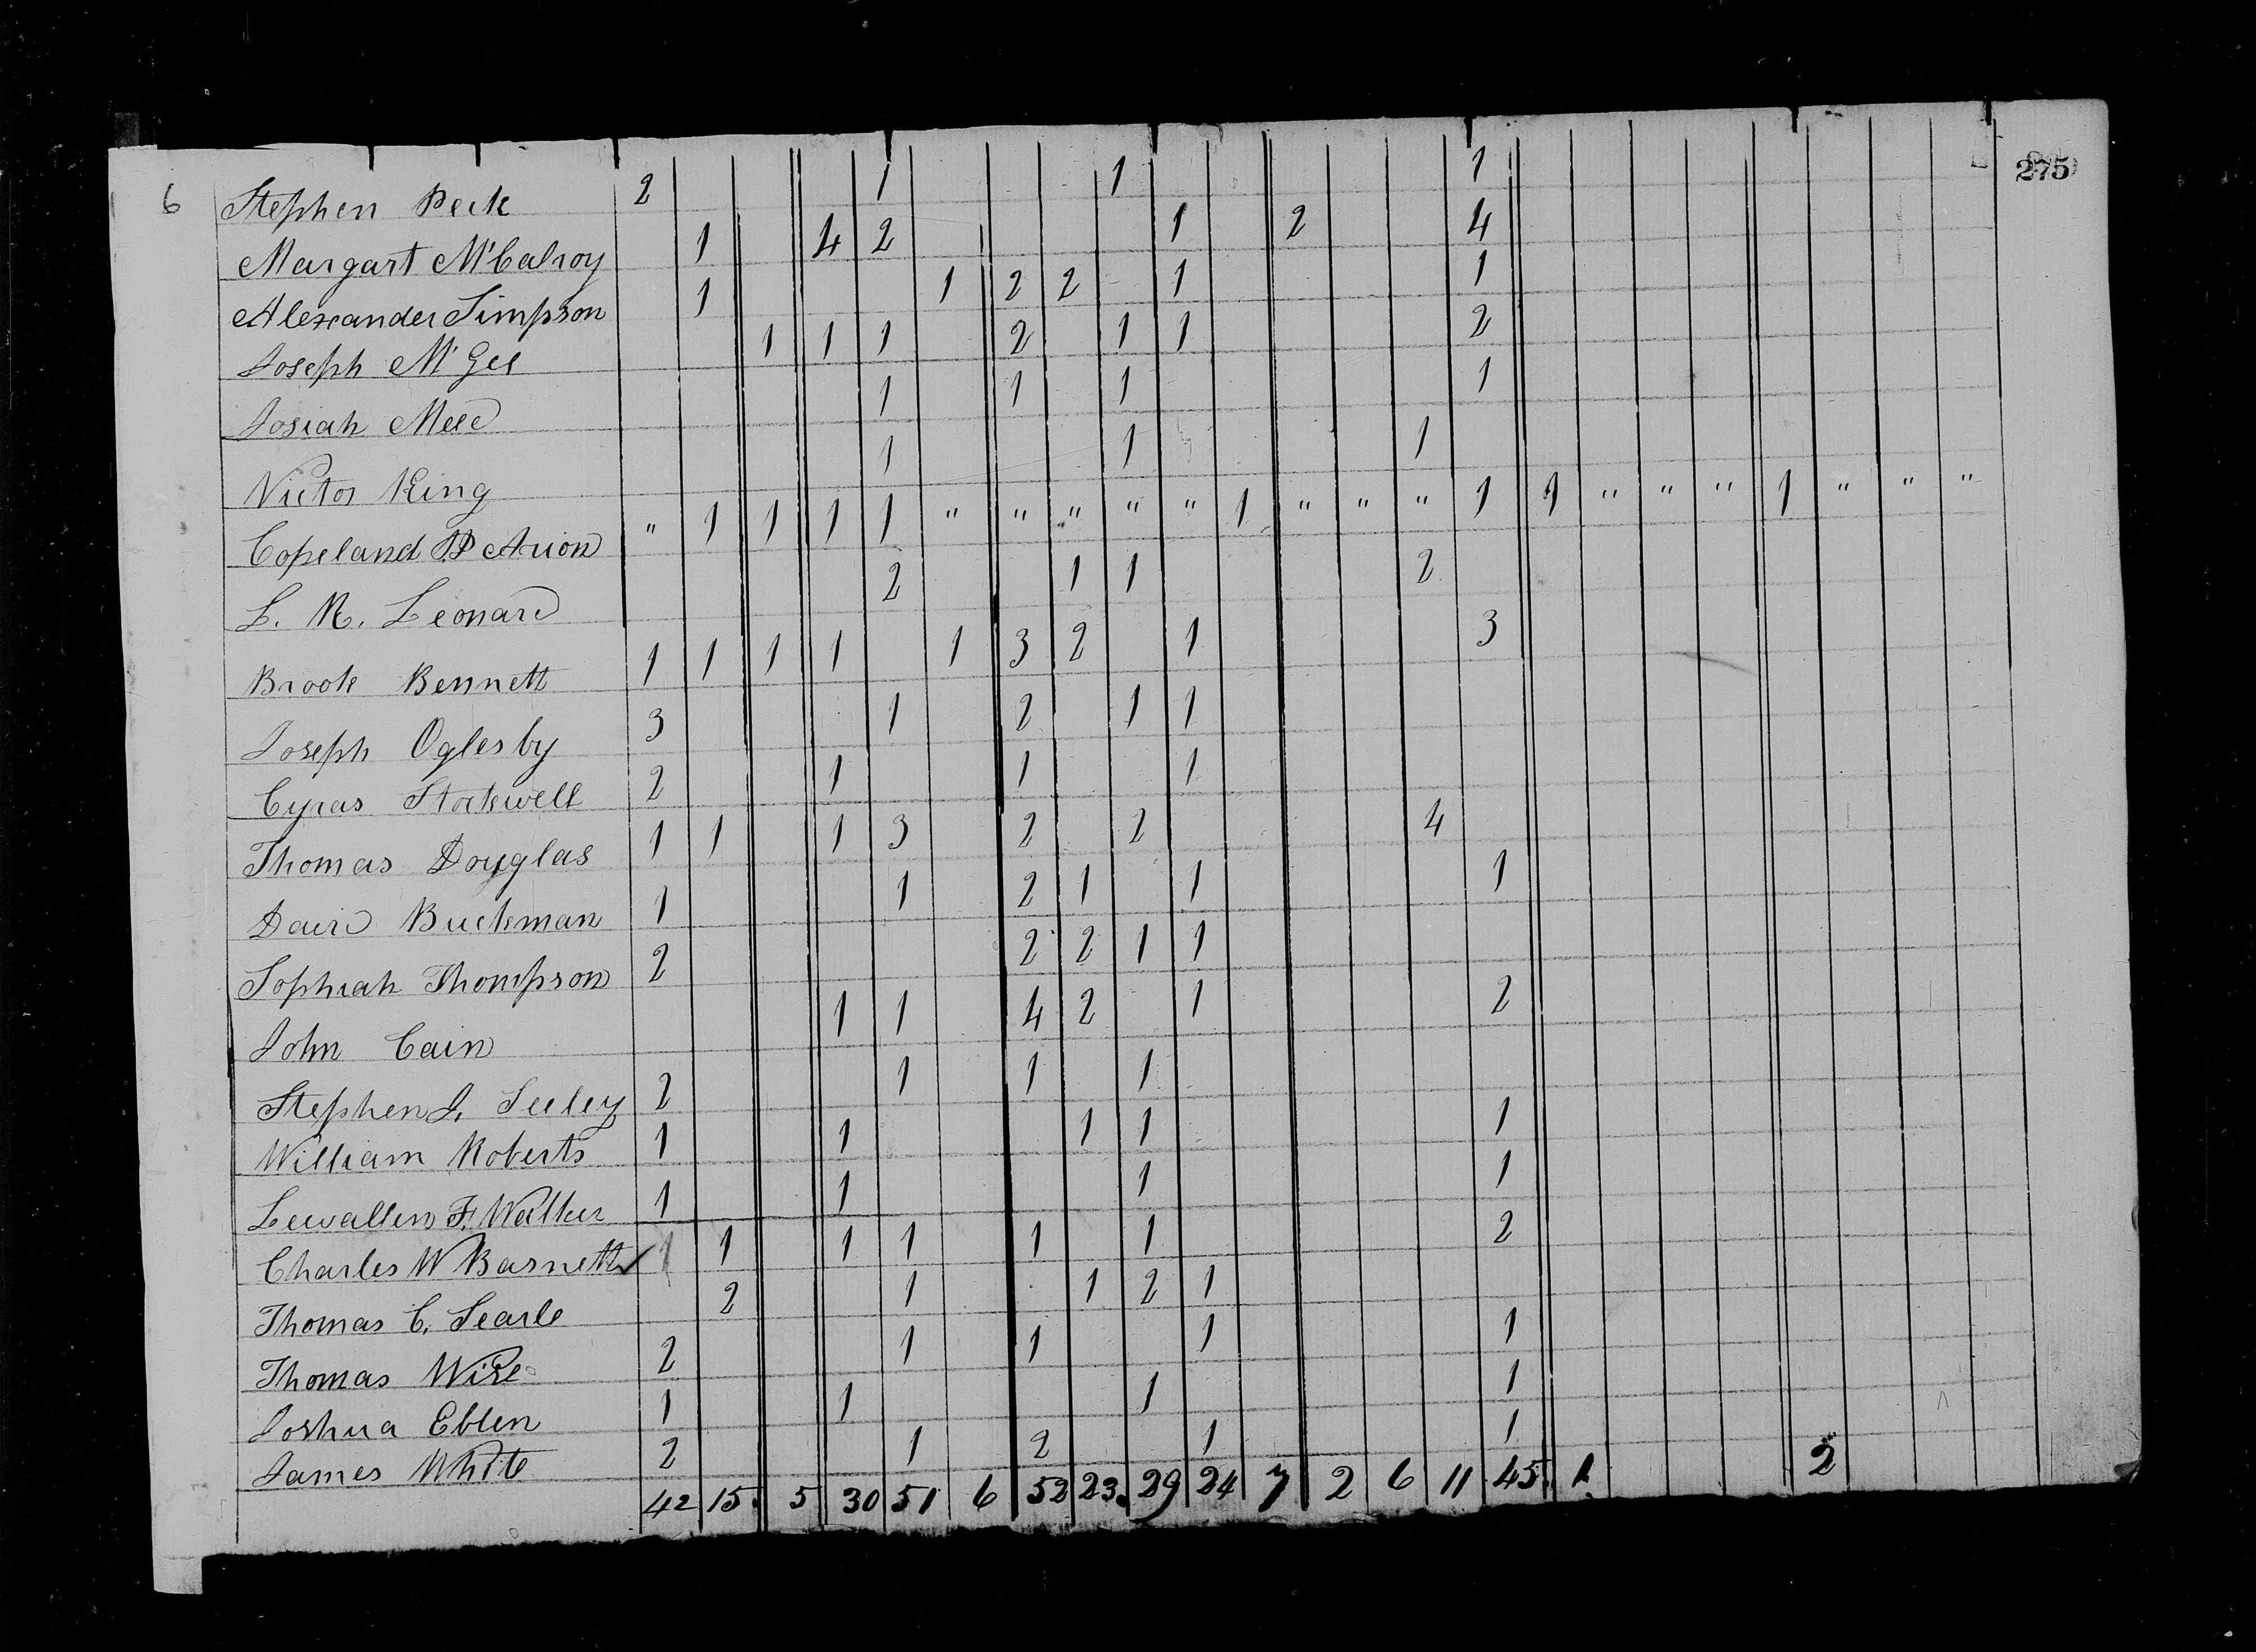 6 275
Stephen Peck 2 1 1 1
Margart McCalroy 1 4 2 1 2 4
Alexander Simpson 1 1 2 2 1 1
Joseph McGee 1 1 1 2 1 1 2
Josiah Meed 1 1 1 1
Victor King 1 1 1
Copeland P Arion " 1 1 1 1 " " " " " 1 " " " 1 1 " " " 1 " " "
L. R. Leonard 2 1 1 2
Brook Bennett 1 1 1 1 1 3 2 1 3
Joseph Oglesby 3 1 2 1 1
Cyras Stockwell 2 1 1 1
Thomas Douglas 1 1 1 3 2 2 4
David Buckman 1 1 2 1 1 1
Sophiah Thompson 2 2 2 1 1
John Cain 1 1 4 2 1 2
Stephen J. Seeley 2 1 1 1
William Roberts 1 1 1 1 1
Lewallen F. Walker 1 1 1 1
Charles W Barnett 1 1 1 1 1 1 2
Thomas C. Searle 2 1 1 2 1
Thomas Wise 2 1 1 1 1
Joshua Eblen 1 1 1 1
James White 2 1 2 1 1
42 15 5 30 51 6 52 23 29 24 7 2 6 11 45 1 2